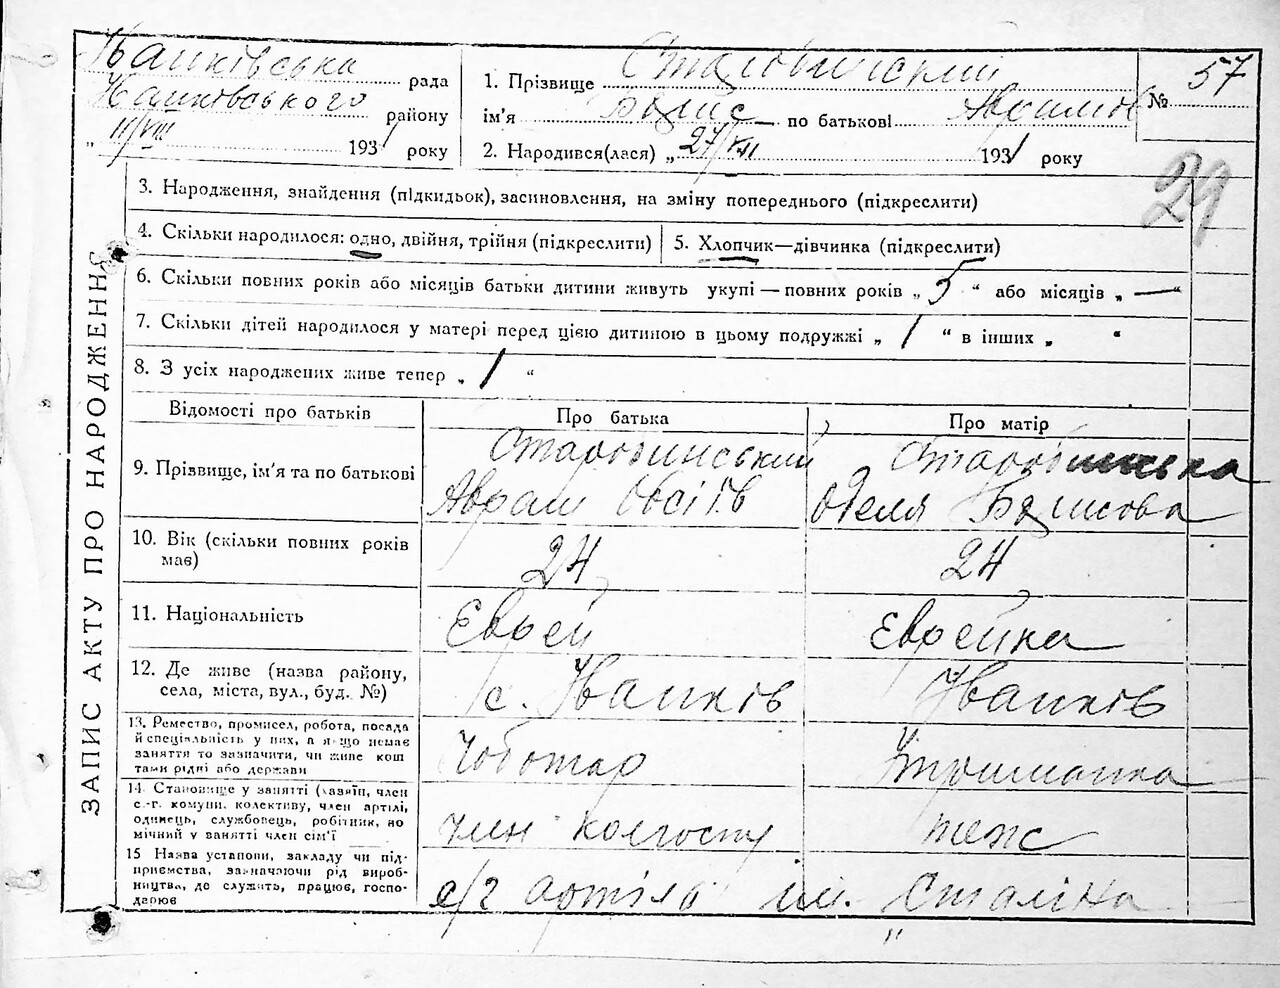 ЗАПИС АКТУ ПРО НАРОДЖЕННЯ
Іванківська рада
Іванківського району
„11/VIII 1931 року
1. Прізвище Старобинський
ім'я Борис по батькові Аврамів
2. Народився(лася) „27/VII 1931 року
№ 57
29
3. Народження, знайдення (підкидьок), засиновлення, на зміну попереднього (підкреслити)
4. Скільки народилося: одно, двійня, трійня (підкреслити)
5. Хлопчик—дівчинка (підкреслити)
6. Скільки повних років або місяців батьки дитини живуть укупі — повних років „ 5 “ або місяців „ — “
7. Скільки дітей народилося у матері перед цією дитиною в цьому подружжі „ 1 “ в інших „ “
8. З усіх народжених живе тепер „ 1 “
Відомості про батьків
Про батька
Про матір
9. Прізвище, ім'я та по батькові
Старобинський
Аврам Овсіїв
Старобинська
Борисова
10. Вік (скільки повних років
має)
24
24
11. Національність
Єврей
Єврейка
12. Де живе (назва району,
села, міста, вул., буд. №)
с. Іванків
Іванків
13. Ремество, промисел, робота, посада
й спеціяльність у них, а якщо немає
заняття то зазначити, чи живе кош
тами рідні або держави
Чоботар
Утриманка
14. Становище у занятті (хазяїн, член
с.-г. комуни, колективу, член артілі,
одинець, службовець, робітник, по
мічний у занятті член сім'ї
Член колгоспу
теж
15 Назва установи, закладу чи під-
приємства, зазначаючи рід вироб-
ництва, де служить, працює, госпо-
дарює
с/г артіль ім. Сталіна